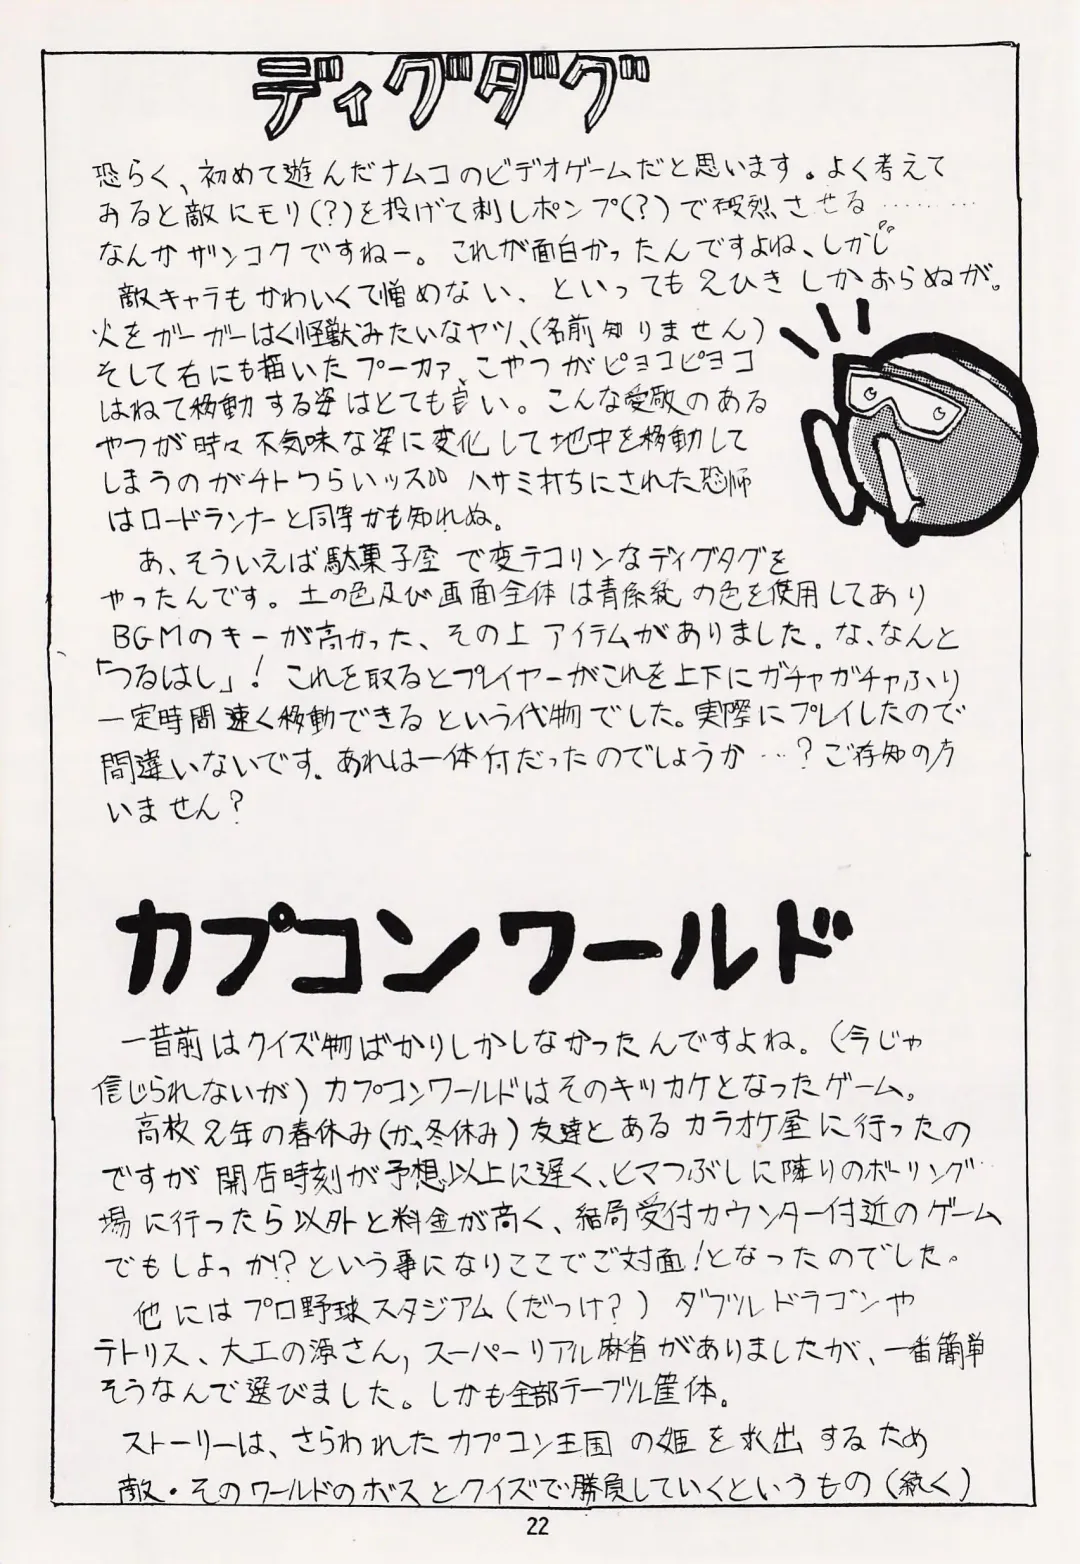 ディグダグ
恐らく、初めて遊んだナムコのビデオゲームだと思います。よく考えて
みると敵にモリ(?)を投げて刺しポンプ(?)で破烈させる………
なんかザンコクですねー。これが面白かったんですよね、しかし
敵キャラもかわいくて憎めない、といっても2ひきしかおらぬが。
火をガーガーはく怪獣みたいなヤツ、(名前知りません)
そして右にも描いたプーカァ、こやつがピョコピョコ
はねて移動する姿はとても良い。こんな愛敬のある
やつが時々不気味な姿に変化して地中を移動して
しまうのがチトつらいッス。ハサミ打ちにされた恐怖
はロードランナーと同等かも知れぬ。
あ、そういえば駄菓子屋で変テコリンなディグダグを
やったんです。土の色及び画面全体は青系統の色を使用してあり
BGMのキーが高かった、その上アイテムがありました。な、なんと
「つるはし」! これを取るとプレイヤーがこれを上下にガチャガチャふり
一定時間速く移動できるという代物でした。実際にプレイしたので
間違いないです。あれは一体何だったのでしょうか…?ご存知の方
いません?
カプコンワールド
一昔前はクイズ物ばかりしかしなかったんですよね。(今じゃ
信じられないが)カプコンワールドはそのキッカケとなったゲーム。
高校2年の春休み(か、冬休み)友達とあるカラオケ屋に行ったの
ですが開店時刻が予想以上に遅く、ヒマつぶしに隣りのボーリング
場に行ったら以外と料金が高く、結局受付カウンター付近のゲーム
でもしよっか!?という事になりここでご対面!となったのでした。
他にはプロ野球スタジアム(だっけ?)ダブルドラゴンや
テトリス、大工の源さん,スーパーリアル麻雀がありましたが、一番簡単
そうなんで選びました。しかも全部テーブル筐体。
ストーリーは、さらわれたカプコン王国の姫を救出するため
敵・そのワールドのボスとクイズで勝負していくというもの(続く)
22